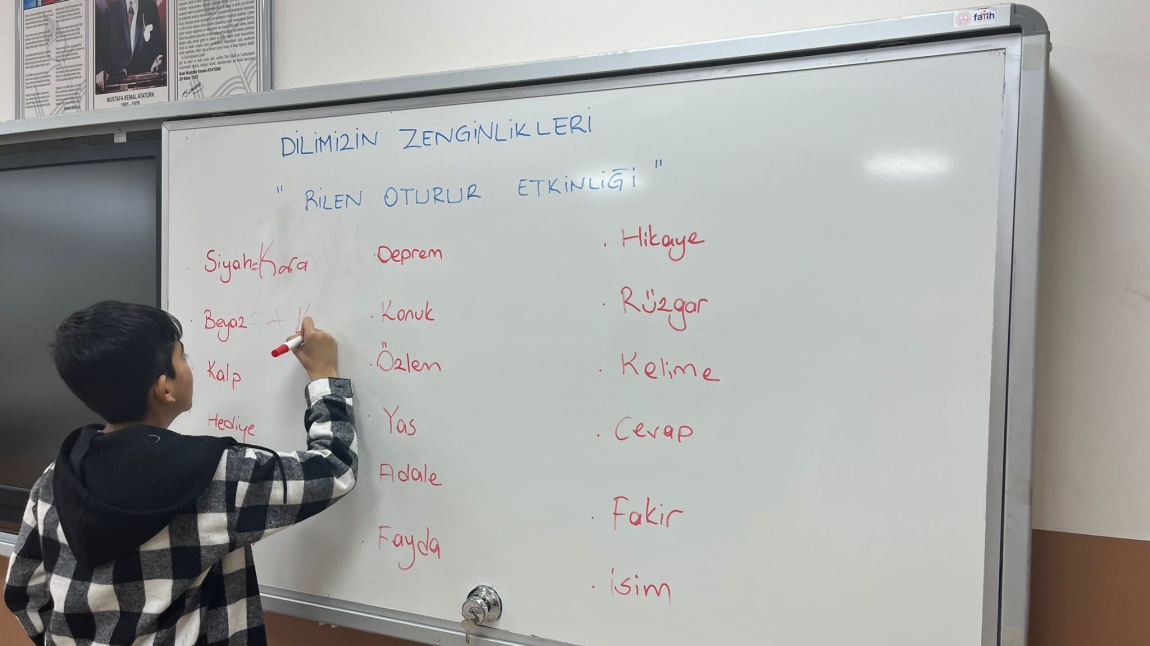 fatih
MUSTAFA KEMAL ATATÜRK
1881 - 1938
DİLİMİZİN ZENGİNLİKLERİ
" BİLEN OTURUR ETKİNLİĞİ "
. Siyah=Kara
. Beyaz =
Kalp
Hediye
. Deprem
. Konuk
. Özlem
. Yas
. Adale
. Fayda
. Hikaye
. Rüzgar
. Kelime
. Cevap
. Fakir
. İsim